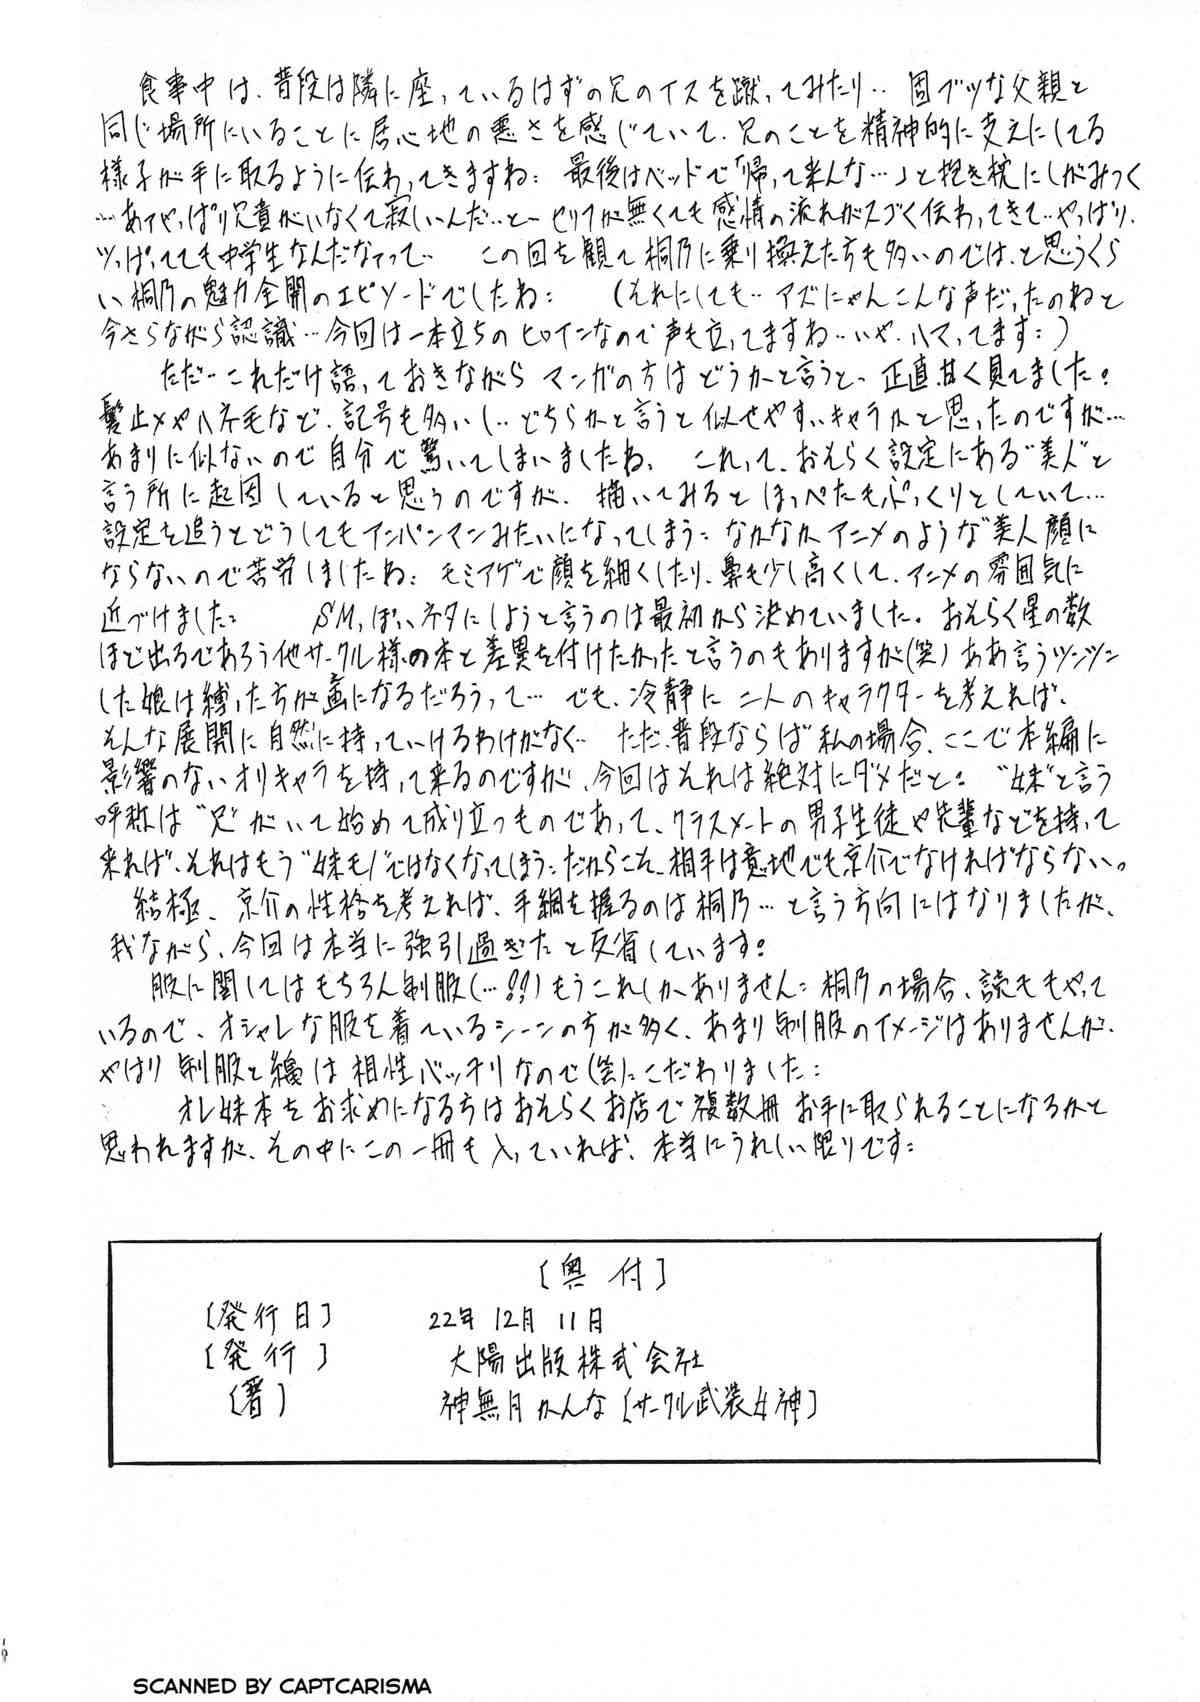 食事中は、普段は隣に座っているはずの兄のイスを蹴ってみたり‥ 固ブツな父親と
同じ場所にいることに居心地の悪さを感じていて、兄のことを精神的に支えにしてる
様子が手に取るように伝わってきますね: 最後はベッドで「帰って来んな…」と抱き枕にしがみつく
…あァやっぱり兄貴がいなくて寂しいんだ‥と一セリフが無くても感情の流れがスゴく伝わってきて‥やっぱり、
ツっぱってても中学生なんだなァって‥ この回を観て桐乃に乗り換えた方も多いのでは、と思うくら
い桐乃の魅力全開のエピソードでしたね: (それにしても‥アズにゃんこんな声だったのねと
今さらながら認識…今回は一本立ちのヒロインなので声も立ってますね…いや、ハマってます:)
ただ‥これだけ語っておきながら マンガの方はどうかと言うと、正直甘く見てました。
髪止メやハネ毛など、記号も多いし‥どちらかと言うと似せやすいキャラかと思ったのですが…
あまりに似ないので自分で驚いてしまいましたね、 これって、おそらく設定にある“美人”と
言う所に起因していると思うのですが、描いてみるとほっぺたもぷっくりとしていて…
設定を追うとどうしてもアンパンマンみたいになってしまう: なかなかアニメのような“美人顔に
ならないので苦労しましたね: モミアゲで顔を細くしたり、鼻も少し高くして、アニメの雰囲気に
近づけました: SMっぽいネタにしようと言うのは最初から決めていました。おそらく星の数
ほど出るであろう他サークル様の本と差異を付けたかったと言うのもありますが(笑) ああ言うツンツン
した娘は縛った方が画になるだろうって… でも、冷静に二人のキャラクターを考えれば、
そんな展開に自然に持っていけるわけがなく‥ ただ、普段ならば私の場合、ここで本編に
影響のないオリキャラを持って来るのですが、今回はそれは絶対にダメだと: “妹”と言う
呼称は“兄”がいて始めて成り立つものであって、クラスメートの男子生徒や先輩などを持って
来れば、それはもう“妹モノ”ではなくなってしまう:だからこそ、相手は意地でも京介でなければならない。
結極、京介の性格を考えれば、手綱を握るのは桐乃…と言う方向にはなりましたが、
我ながら、今回は本当に強引過ぎたと反省しています:
服に関してはもちろん制服(…!?)もうこれしかありません: 桐乃の場合、読モもやって
いるので、オシャレな服を着ているシーンの方が多く、あまり制服のイメージはありませんが、
やはり制服と縄は相性バッチリなので(笑)こだわりました:
オレ妹本をお求めになる方はおそらくお店で複数冊お手に取られることになるかと
思われますが、その中にこの一冊も入っていれば、本当にうれしい限りです:
[奥付]
[発行日] 22年12月11日
[発行] 大陽出版株式会社
[著] 神無月かんな[サークル武装女神]
SCANNED BY CAPTCARISMA